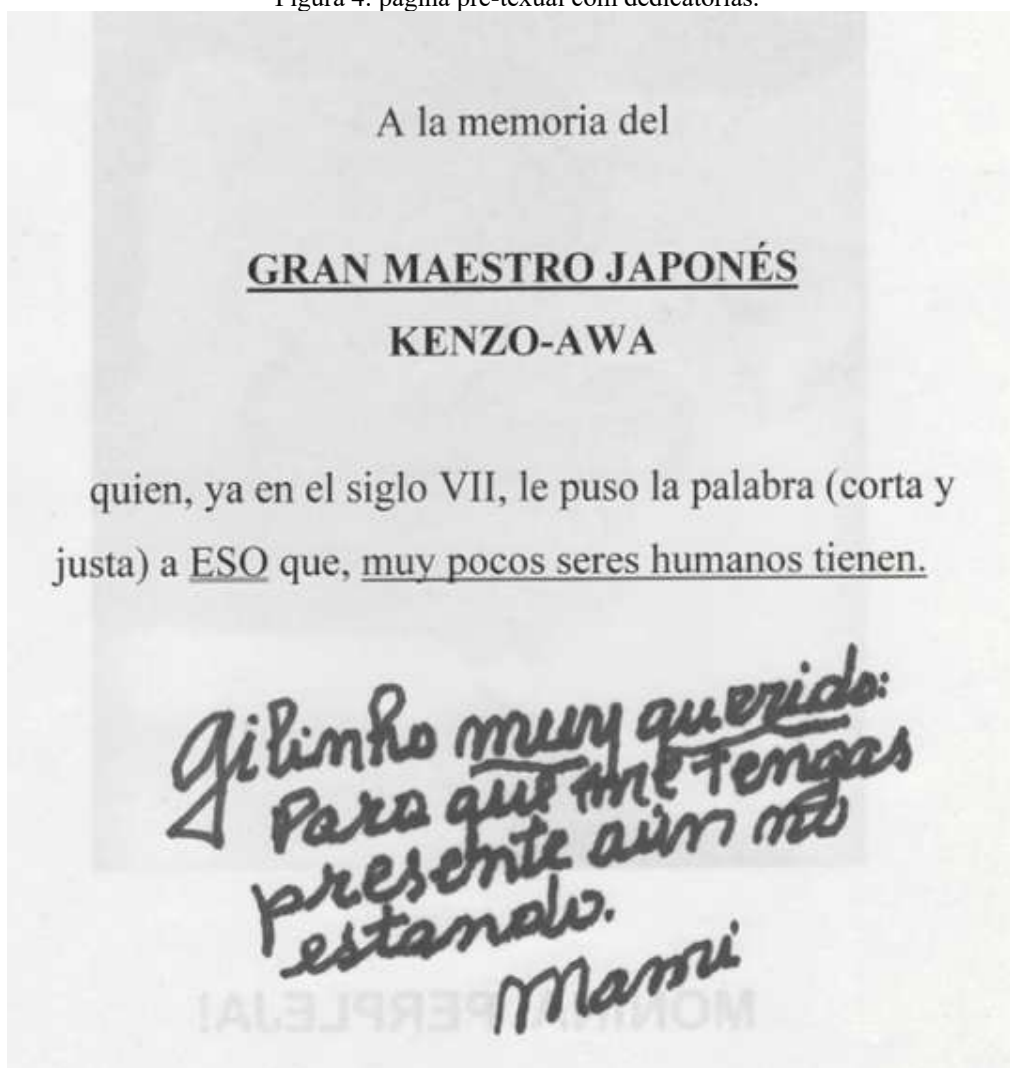 Figura 4: página pré-texual com dedicatórias.
A la memoria del
GRAN MAESTRO JAPONÉS
KENZO-AWA
quien, ya en el siglo VII, le puso la palabra (corta y
justa) a ESO que, muy pocos seres humanos tienen.
Gilinho muy querido:
Para que me tengas
presente aún no
estando.
Mami
PERPLEJA!